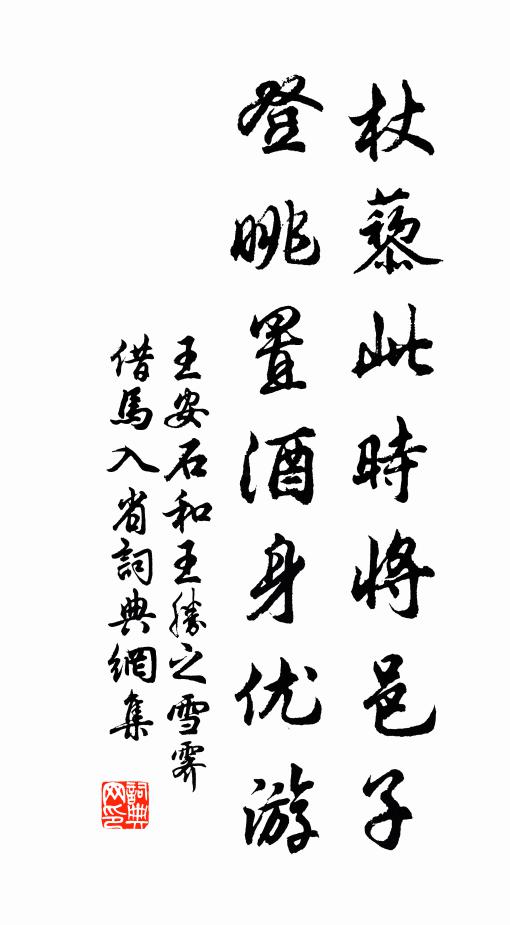 杖藜此時將邑子
登眺置酒身优游
王安石和王勝之雪霽
借馬入省詞典網集
詞典
网印